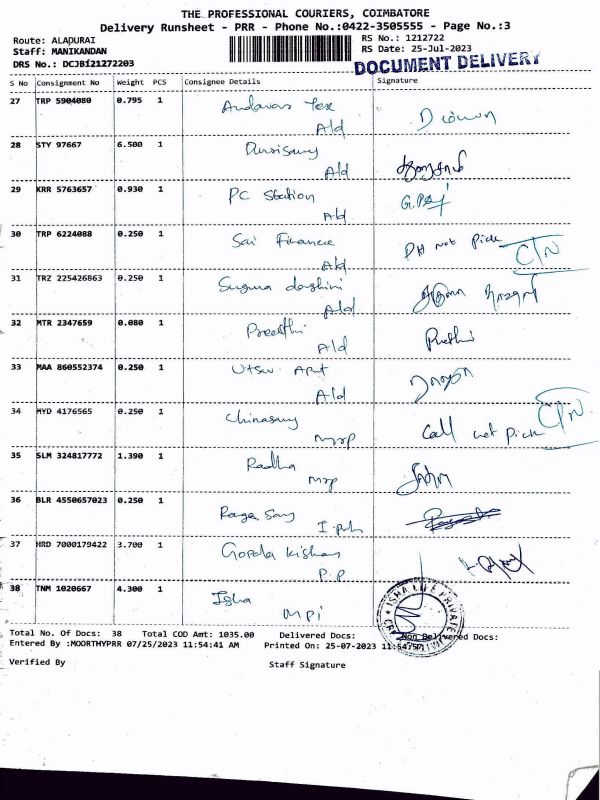 THE PROFESSIONAL COURIERS, COIMBATORE
Delivery Runsheet - PRR - Phone No.:0422-3505555 - Page No.:3
Route: ALAPURAI
RS No.: 1212722
Staff: MANIKANDAN
RS Date: 25-Jul-2023
DRS No.: DCJB121272203
DOCUMENT DELIVERY
S No Consignment No Weight PCS Consignee Details Signature
27 TRP 5904080 0.795 1 Andavar Tex
Ald
28 STY 97667 6.500 1 Duraisamy
Ald
29 KRR 5763657 0.930 1 PC Station
Ald
30 TRP 6224088 0.250 1 Sai Finance PH not Pick C/N
Ald
31 TRZ 225426863 0.250 1 Suguna
Ald
32 MTR 2347659 0.080 1 Preethi Preethi
Ald
33 MAA 860552374 0.250 1
Ald
34 MYD 4176565 0.250 1 Chinasamy Call not pick C/N
35 SLM 324817772 1.390 1 Radha
36 BLR 4550657023 0.250 1
37 HRD 7000179422 3.700 1 Kishan
P.P
38 TNM 1020667 4.300 1 Isha
ISHA LIFE PRIVATE
Total No. Of Docs: 38 Total COD Amt: 1035.00 Delivered Docs: Non Delivered Docs:
Entered By :MOORTHYPRR 07/25/2023 11:54:41 AM Printed On: 25-07-2023 11:54:57
Verified By Staff Signature